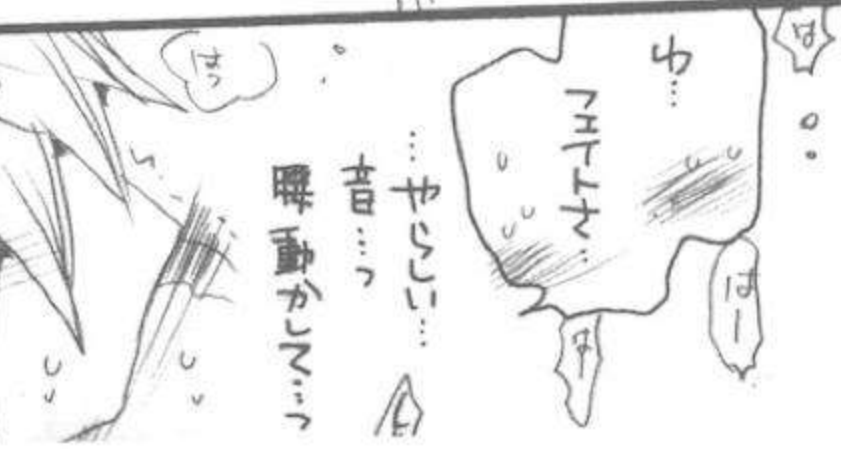 は
わ…
フェイトさ…
はー
は
…やらしい…
音…っ
腰動かして…っ
はっ